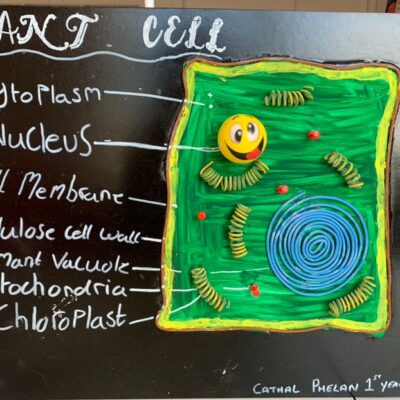 ANT CELL
ytoplasm
Nucleus
l Membrane
ulose cell wall
mant Vacuole
tochondria
Chloroplast
CATHAL PHELAN 1ST YEA